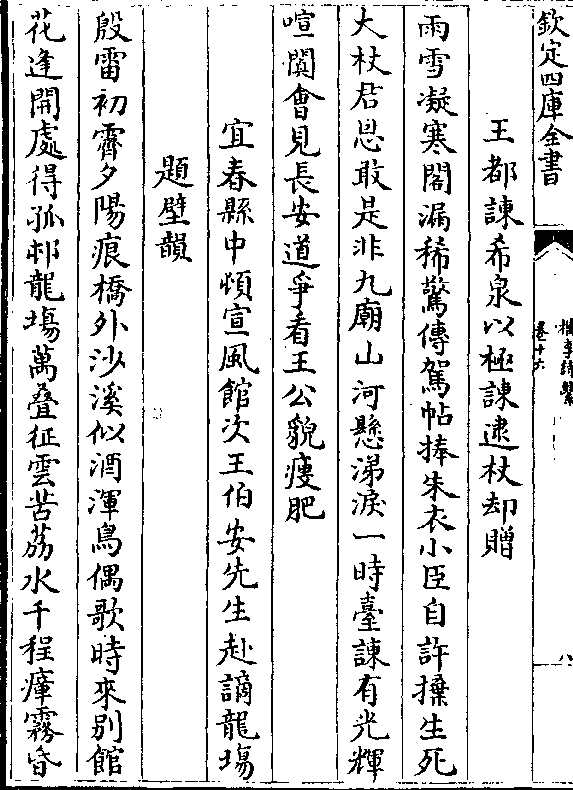 欽定四庫全書
檇李詩繫
卷十六
八
王都諫希泉以極諫逮杖却贈
雨雪凝寒閣漏稀驚傳駕帖捧朱衣小臣自許摷生死
大杖君恩敢是非九廟山河懸涕淚一時臺諫有光輝
喧闐會見長安道爭看王公貌瘦肥
宜春縣中頓宣風館次王伯安先生赴謫龍塲
題壁韻
殷雷初霽夕陽痕橋外沙溪似酒渾鳥偶歌時來別館
花逢開處得孤邨龍塲萬疊征雲苦茘水千程瘴霧昏